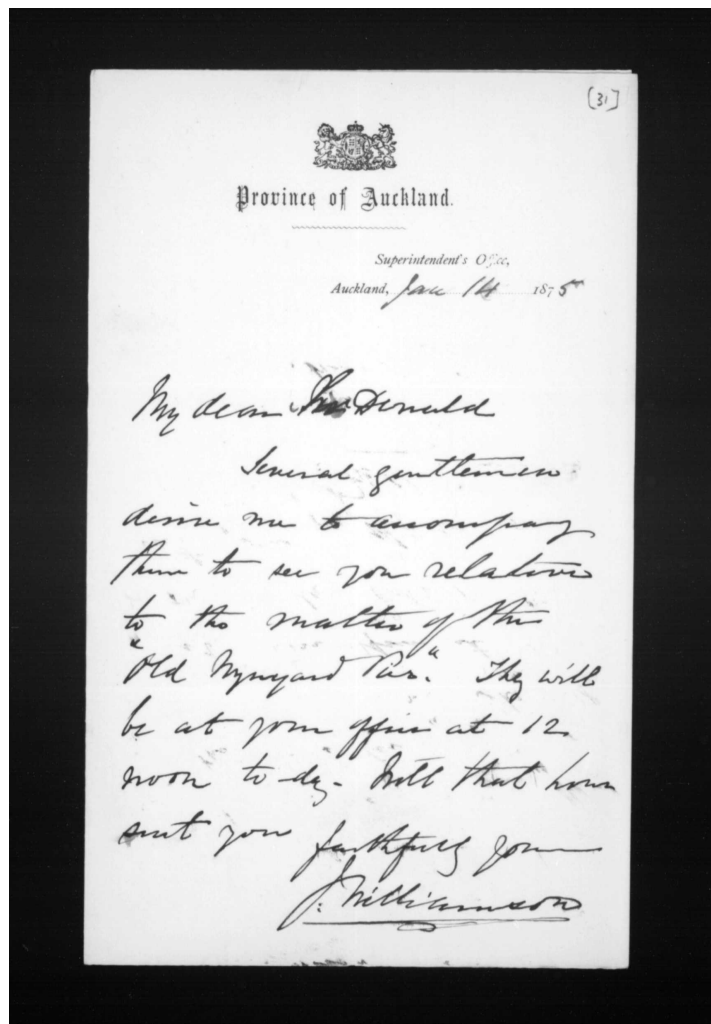 [31]
Province of Auckland.
Superintendent's Office,
Auckland, Jan 14 1875
My dear Sir Donald
Several gentlemen
desire me to accompay
them to see you relative
to the matter of the
"Old Wynyard Pier". They will
be at your office at 12
noon to-day - Will that hour
suit you
faithfully yours
J. Williamson